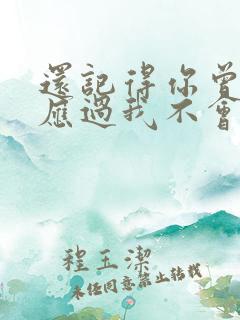 還記得你曾
應過我不會
程玉潔
未經同意禁止轉載